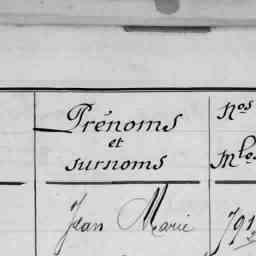 Prénoms
et
surnoms
Nos
Mles
Jean Marie
791